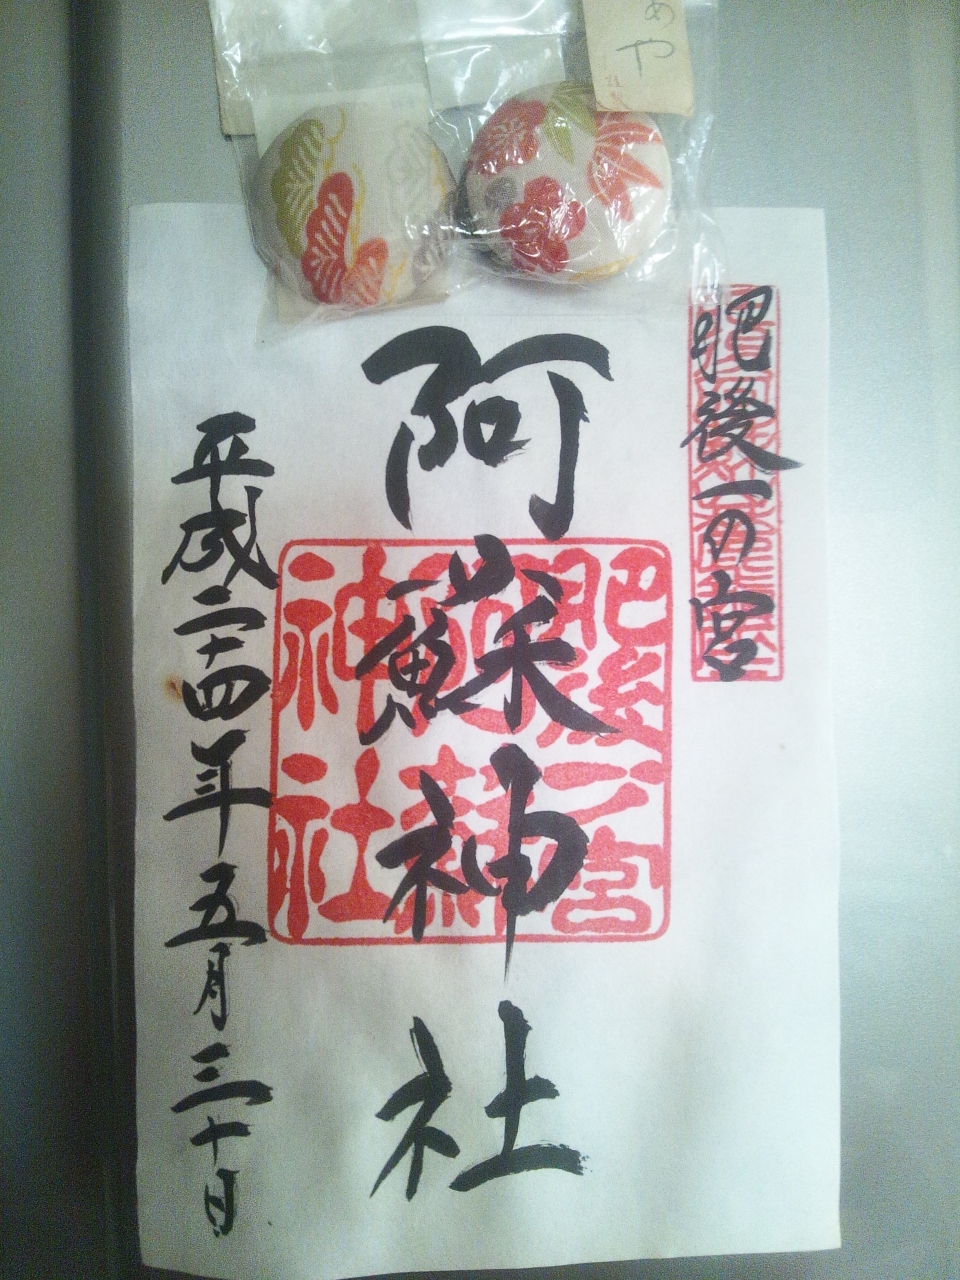 めや
肥後一の宮
阿蘇神社
平成二十四年五月三十日
肥後一宮
阿蘇
神社